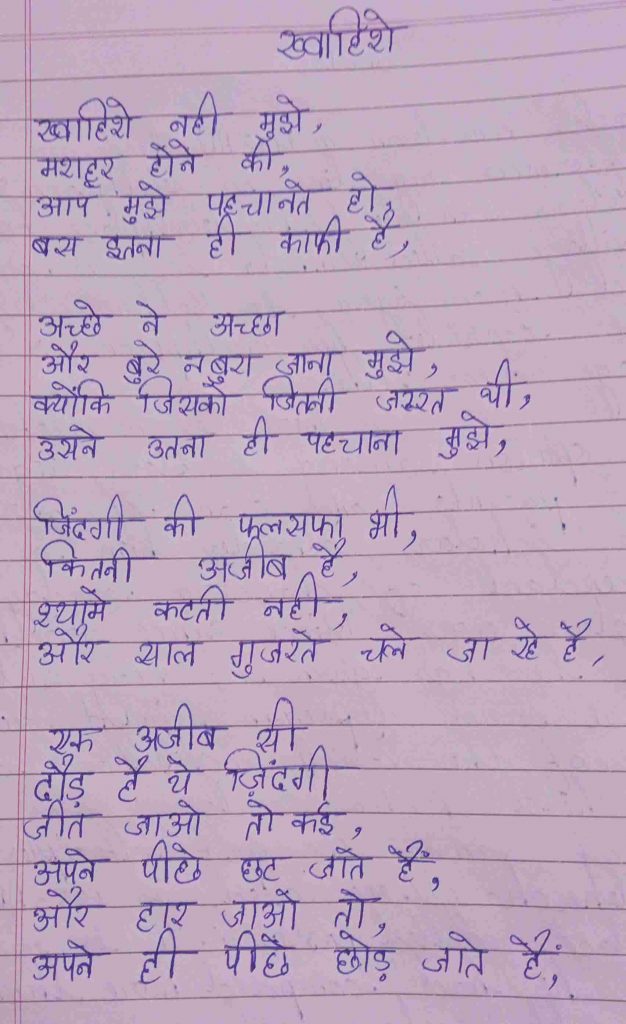 ख्वाहिशे
ख्वाहिशे नही मुझे,
मशहूर होने की,
आप मुझे पहचानते हो,
बस इतना ही काफी है,
अच्छे ने अच्छा
और बुरे न बुरा जाना मुझे,
क्योंकि जिसको जितनी जरूरत थी,
उसने उतना ही पहचाना मुझे,
जिंदगी की फलसफा भी,
कितनी अजीब है,
श्यामे कटती नही,
और साल गुजरते चले जा रहे है,
एक अजीब सी
दौड़ है ये ज़िंदगी
जीत जाओ तो कई,
अपने पीछे छुट जाते हैं,
और हार जाओ तो,
अपने ही पीछे छोड़ जाते हैं,